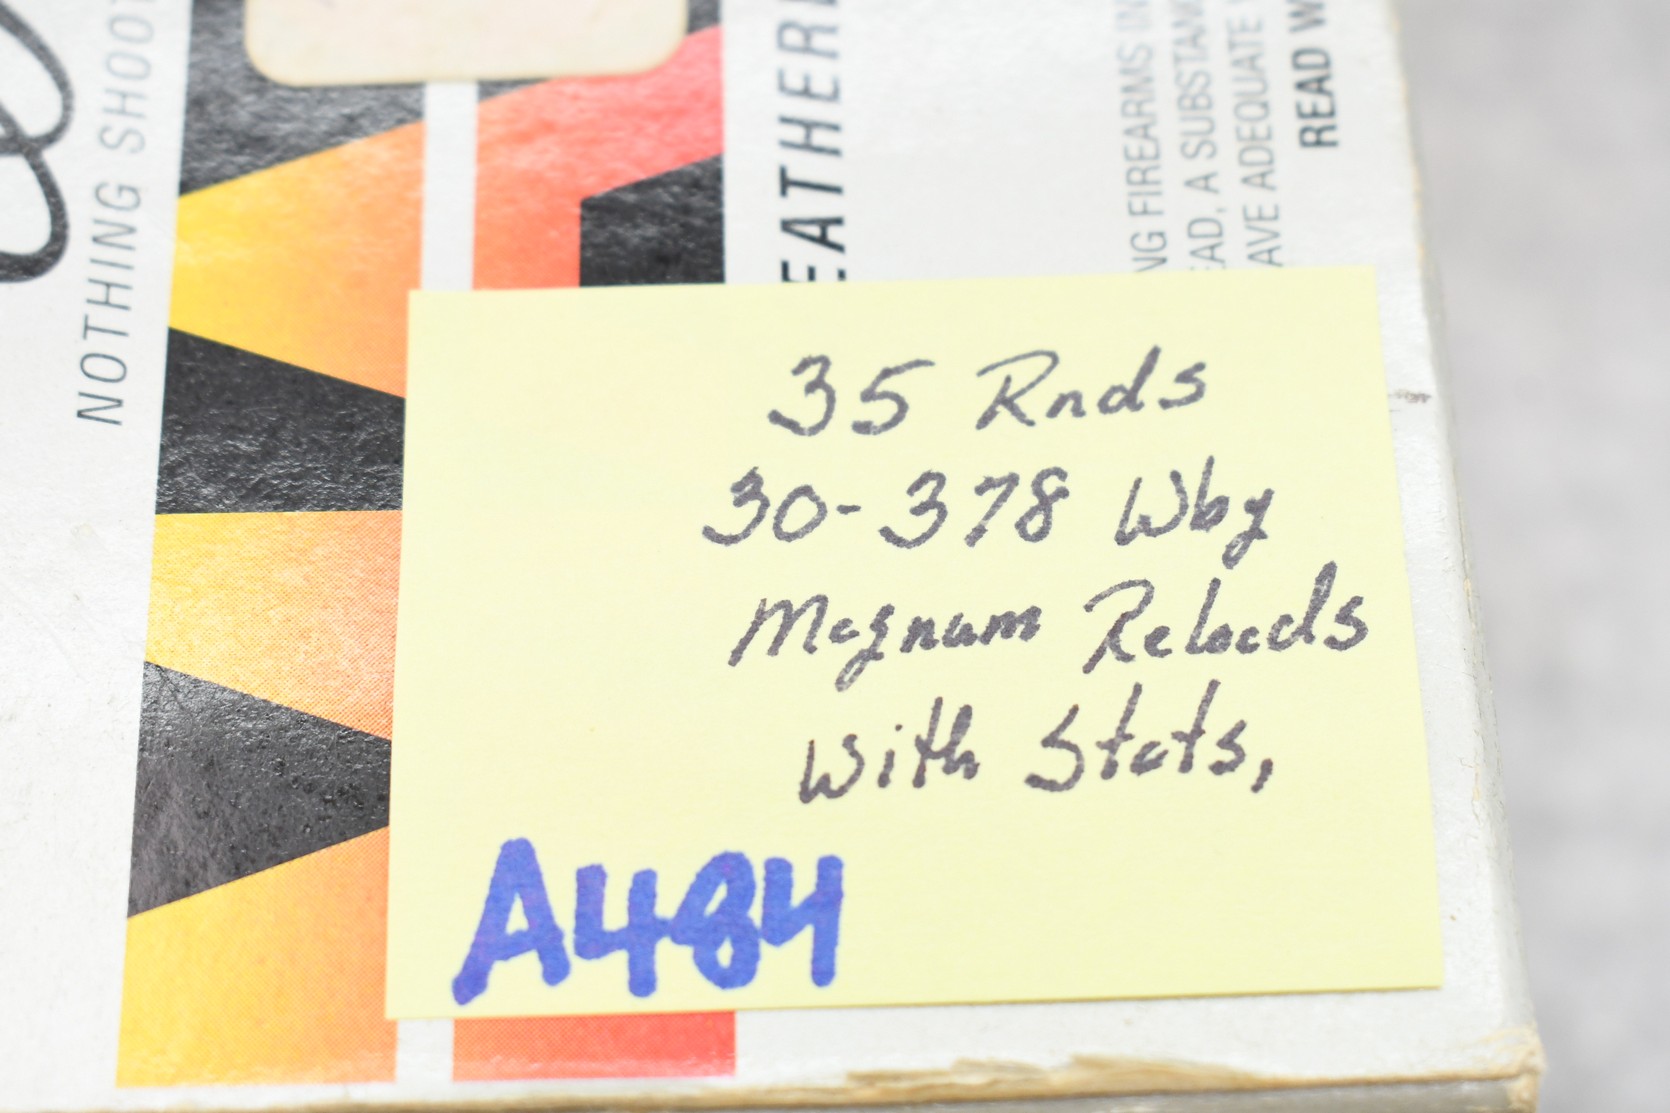 NOTHING SHOOT
EATHER
NG FIREARMS IN
EAD, A SUBSTAN
AVE ADEQUATE
READ W
35 Rnds
30-378 Wby
Magnum Reloads
With Stats,
A484